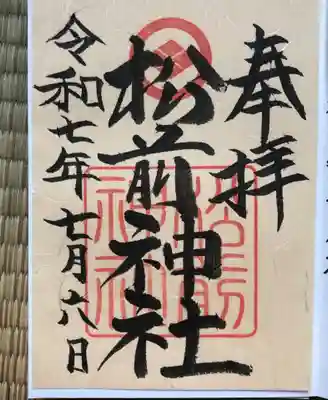 奉拝
松前神社
松前神社
令和七年七月六日